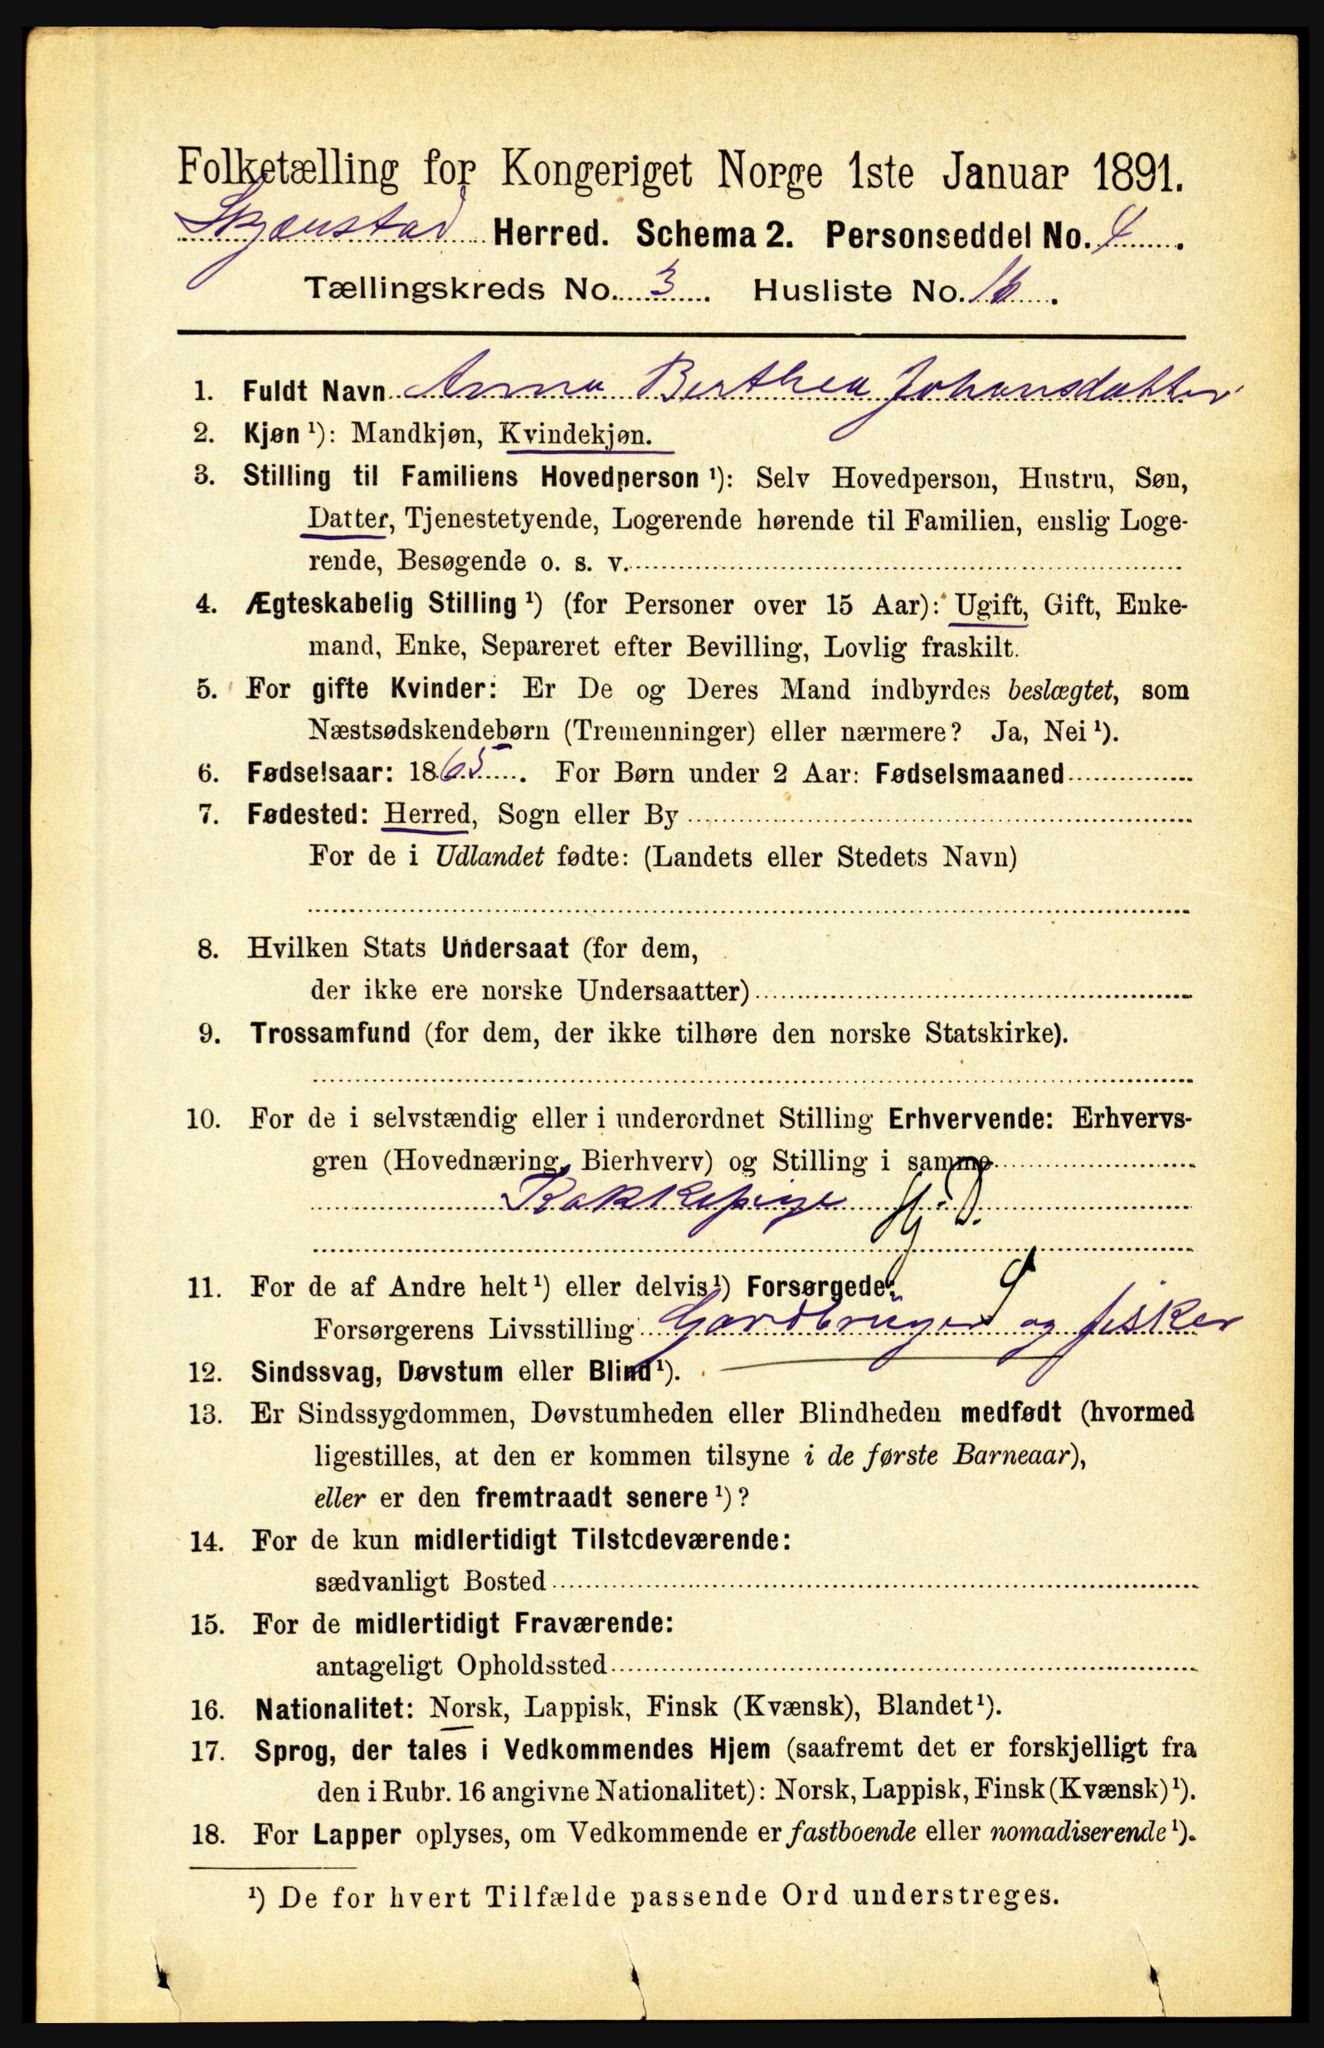 Folketælling for Kongeriget Norge 1ste Januar 1891.
Skjænstad Herred. Schema 2. Personseddel No. 4
Tællingskreds No. 3. Husliste No. 16.
1. Fuldt Navn Anna Berthea Johansdatter
2. Kjøn ¹): Mandkjøn, Kvindekjøn.
3. Stilling til Familiens Hovedperson ¹): Selv Hovedperson, Hustru, Søn,
Datter, Tjenestetyende, Logerende hørende til Familien, enslig Loge-
rende, Besøgende o. s. v.
4. Ægteskabelig Stilling ¹) (for Personer over 15 Aar): Ugift, Gift, Enke-
mand, Enke, Separeret efter Bevilling, Lovlig fraskilt.
5. For gifte Kvinder: Er De og Deres Mand indbyrdes beslægtet, som
Næstsødskendebørn (Tremenninger) eller nærmere? Ja, Nei ¹).
6. Fødselsaar: 1865. For Børn under 2 Aar: Fødselsmaaned
7. Fødested: Herred, Sogn eller By
For de i Udlandet fødte: (Landets eller Stedets Navn)
8. Hvilken Stats Undersaat (for dem,
der ikke ere norske Undersaatter)
9. Trossamfund (for dem, der ikke tilhøre den norske Statskirke).
10. For de i selvstændig eller i underordnet Stilling Erhvervende: Erhvervs-
gren (Hovednæring, Bierhverv) og Stilling i samme
Kokkepige Hj. D.
11. For de af Andre helt ¹) eller delvis ¹) Forsørgede:
Forsørgerens Livsstilling Gardbruger og fisker
12. Sindssvag, Døvstum eller Blind ¹).
13. Er Sindssygdommen, Døvstumheden eller Blindheden medfødt (hvormed
ligestilles, at den er kommen tilsyne i de første Barneaar),
eller er den fremtraadt senere ¹)?
14. For de kun midlertidigt Tilstedeværende:
sædvanligt Bosted
15. For de midlertidigt Fraværende:
antageligt Opholdssted
16. Nationalitet: Norsk, Lappisk, Finsk (Kvænsk), Blandet ¹).
17. Sprog, der tales i Vedkommendes Hjem (saafremt det er forskjelligt fra
den i Rubr. 16 angivne Nationalitet): Norsk, Lappisk, Finsk (Kvænsk) ¹).
18. For Lapper oplyses, om Vedkommende er fastboende eller nomadiserende ¹).
¹) De for hvert Tilfælde passende Ord understreges.